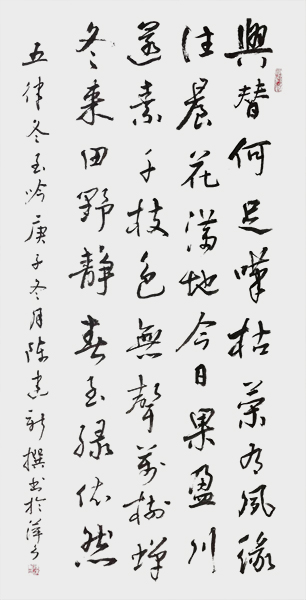 興替何足嘆枯榮有風緣
往晨花滿地今日果盈川
還素千枝色無聲萬樹蟬
冬來田野靜春至綠依然
五律冬至吟庚子冬月陳新撰書於萍鄉